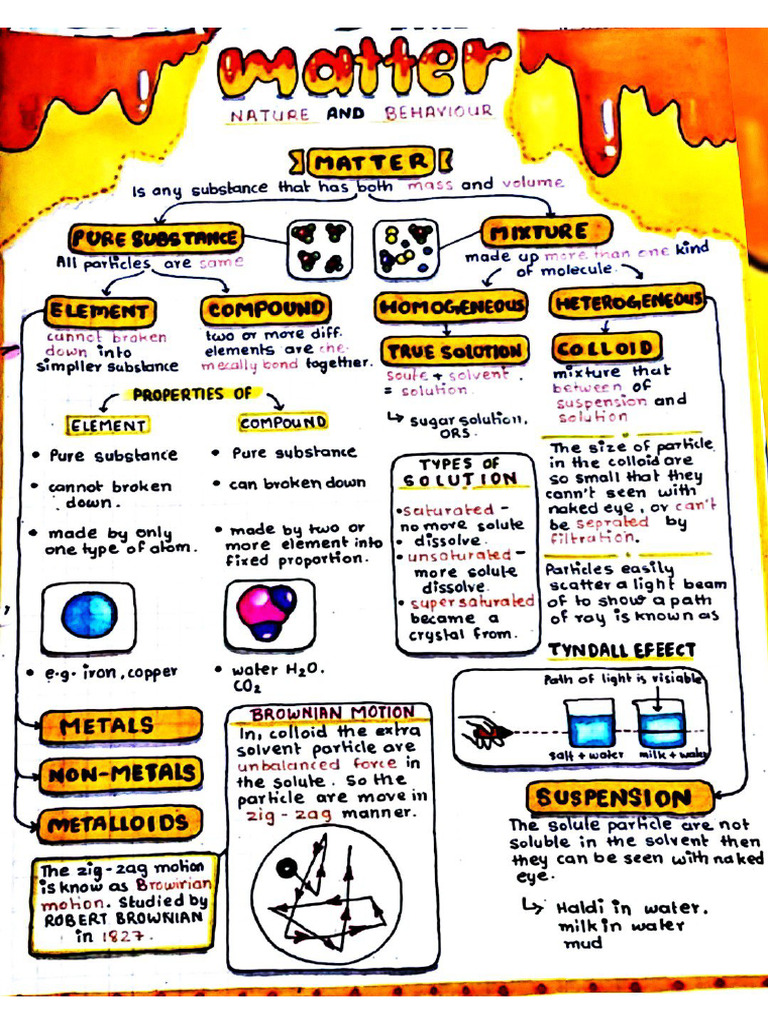 matter
NATURE AND BEHAVIOUR
MATTER
Is any substance that has both mass and volume
PURE SUBSTANCE
All particles are same
MIXTURE
made up more than one kind
of molecule.
ELEMENT
cannot broken
down into
simpller substance
COMPOUND
two or more diff.
elements are che-
mecally bond together.
HOMOGENEOUS
TRUE SOLUTION
soute + solvent.
= solution.
↳ sugar solution,
ORS.
HETEROGENEOUS
COLLOID
mixture that
between of
suspension and
solution
PROPERTIES OF
ELEMENT
• Pure substance
• cannot broken
down.
• made by only
one type of atom.
• e.g. iron, copper
COMPOUND
• Pure substance
• can broken down
• made by two or
more element into
fixed proportion.
• water H2O.
CO2
TYPES OF
SOLUTION
• saturated -
no more solute
• dissolve.
• unsaturated -
more solute
dissolve.
• super saturated
became a
crystal from.
The size of particle
in the colloid are
so small that they
cann't seen with
naked eye, or can't
be seprated by
filtration.
Particles easily
scatter a light beam
of to show a path
of ray is known as
TYNDALL EFEECT
Path of light is visiable
salt + water
milk + water
METALS
NON-METALS
METALLOIDS
The zig-zag motion
is know as Browinian
motion. Studied by
ROBERT BROWNIAN
in 1827.
BROWNIAN MOTION
In, colloid the extra
solvent particle are
unbalanced force in
the solute. So the
particle are move in
zig-zag manner.
SUSPENSION
The solule particle are not
soluble in the solvent then
they can be seen with naked
eye.
↳ Haldi in water.
milk in water
mud